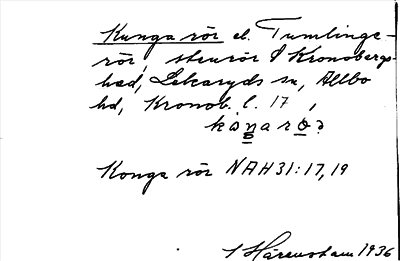 Kunga rör el. Tumlinge-
rör, stenrör å Kronobergs-
hed, Lekaryds sn, Allbo
hd, Kronob. l. 17,
Konga rör NAH 31:17,19
Härenstam 1936